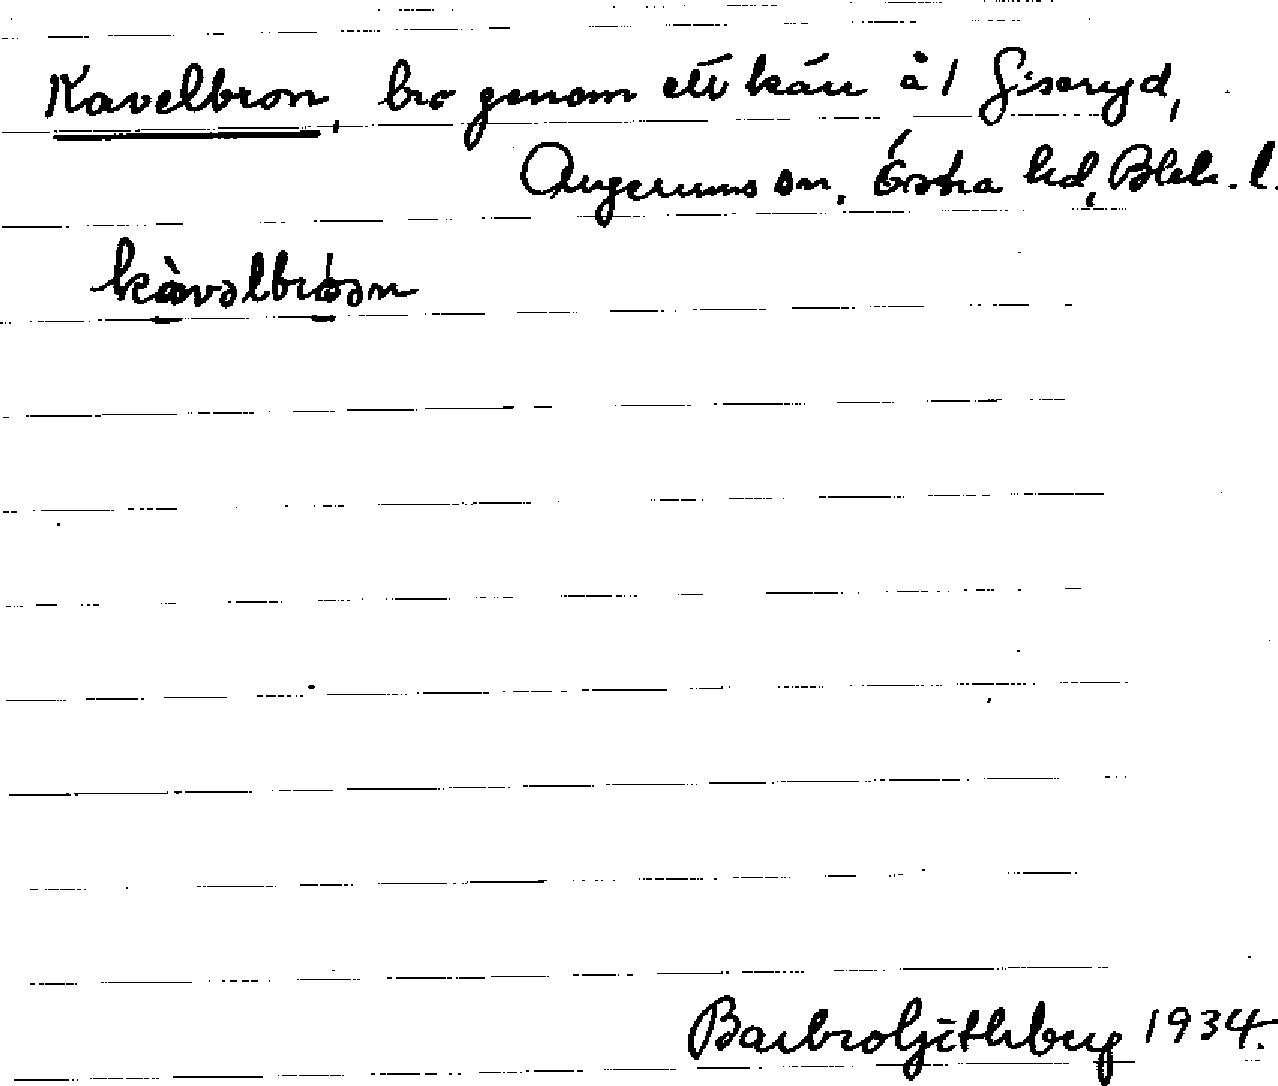 Kavelbron, bro genom ett kärr å 1 Giseryd,
Augerums sn, Östra hd,Blek. l.
kàvəlbróən
Barbro 1934.